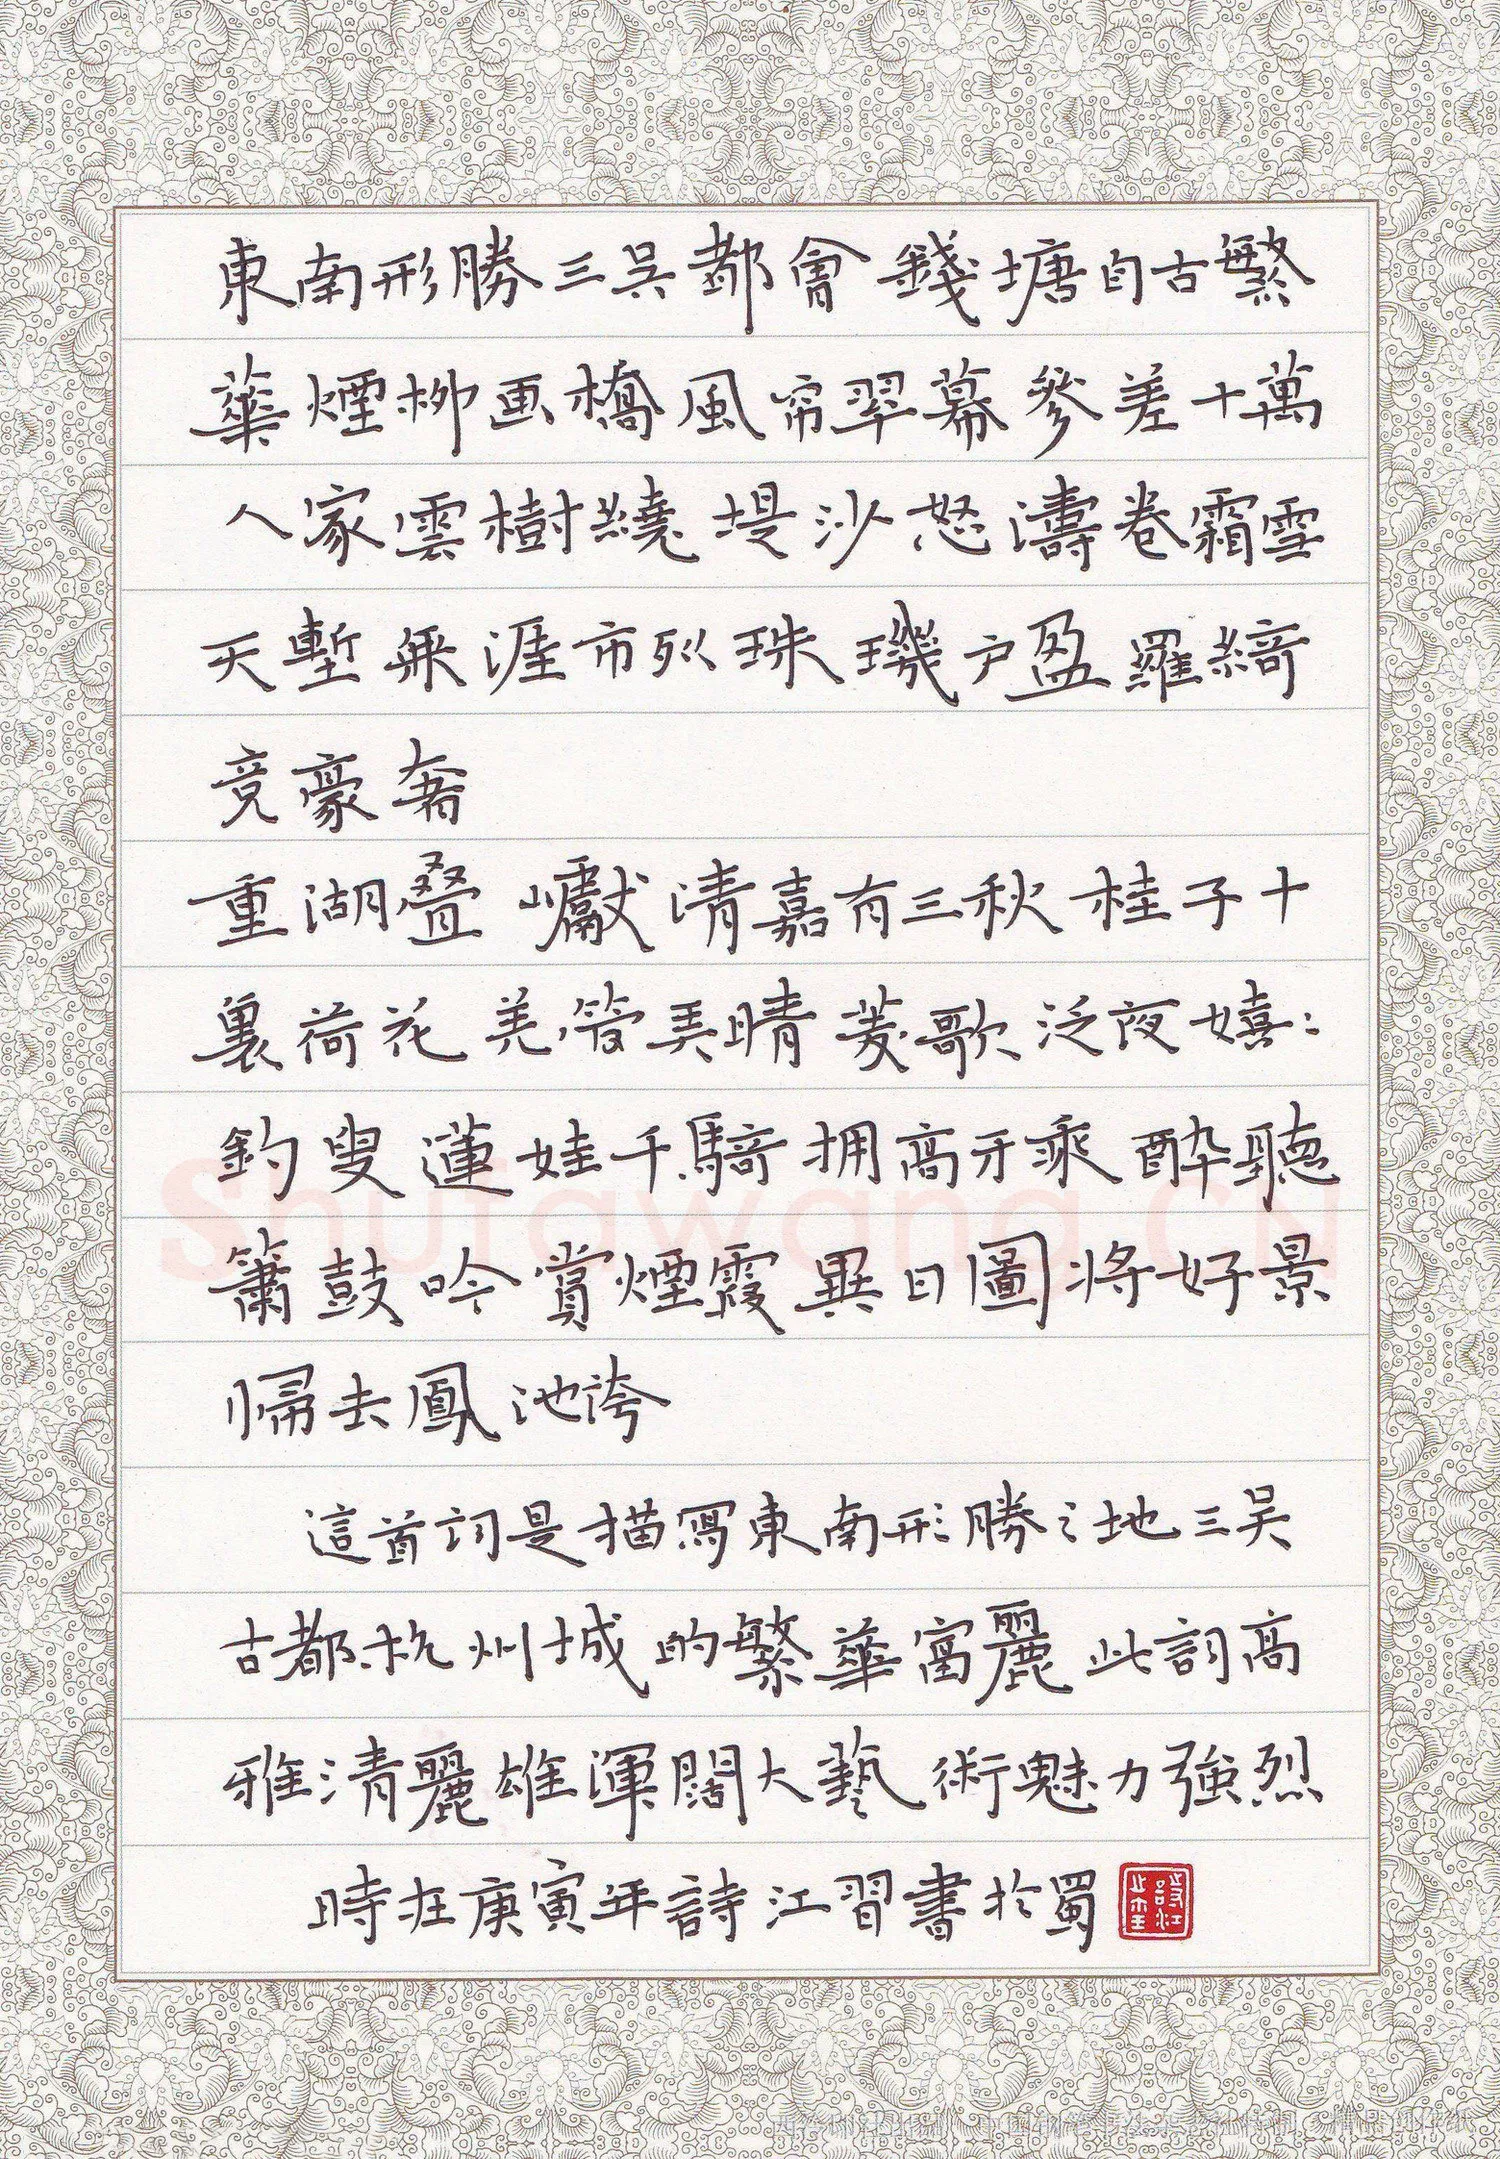 東南形勝三吳都會錢塘自古繁
華煙柳画橋風帘翠幕參差十萬
人家雲樹繞堤沙怒濤卷霜雪
天塹無涯市列珠璣户盈羅綺
竞豪奢
重湖叠巘清嘉有三秋桂子十
裏荷花羌管弄晴菱歌泛夜嬉:
釣叟蓮娃千騎拥高牙乘醉聽
簫鼓吟賞煙霞異日圖将好景
歸去鳳池誇
這首詞是描寫東南形勝之地三吴
古都杭州城的繁華富麗此詞高
雅清麗雄渾闊大藝術魅力強烈
時在庚寅年詩江習書於蜀
Shufawang.CN